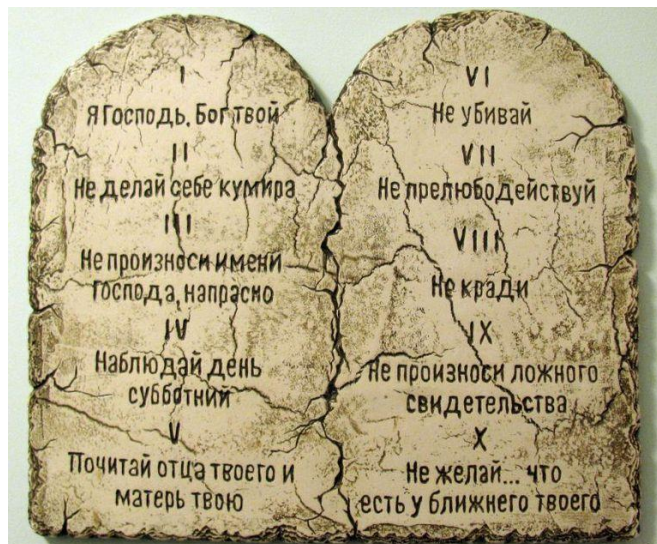 I
Я Господь, Бог твой
II
Не делай себе кумира
III
Не произноси имени
Господа, напрасно
IV
Наблюдай день
субботний
V
Почитай отца твоего и
матерь твою
VI
Не убивай
VII
Не прелюбодействуй
VIII
Не кради
IX
Не произноси ложного
свидетельства
X
Не желай... что
есть у ближнего твоего